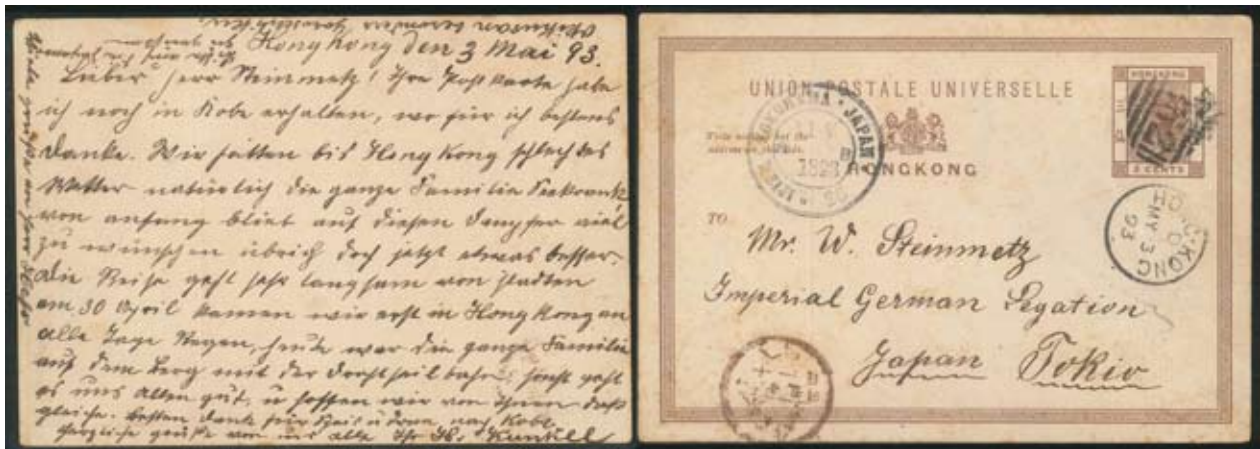 Hong Kong den 3 Mai 93.
Lieber Herr Steinmetz! Ihre Postkarte habe
ich noch in Kobe erhalten, wo für ich bestens
danke. Wir hatten bis Hong Kong schlechtes
Wetter natürlich die ganze Familie Seekrank,
von anfang bliebt auf diesen Dampfer viel
zu wünschen übrich doch jetzt etwas besser.
Die Reise geht sehr langsam von statten
am 30 April kamen wir erst in Hong Kong an
alle Tage Regen, heute war die ganze Familie
auf dem Berg mit der Drathseilbahn, sonst geht
es uns allen gut, u hoffen wir von Ihnen daß
gleiche. besten Dank für nach Kobe
Herzliche grüße von uns alle Ihr Kunkell
UNION POSTALE UNIVERSELLE
HONGKONG
HONGKONG
3 CENTS
YOKOHAMA · JAPAN
HONGKONG
D
MY 3
93
TO
Mr. W. Steinmetz
Imperial German Legation
Japan Tokio